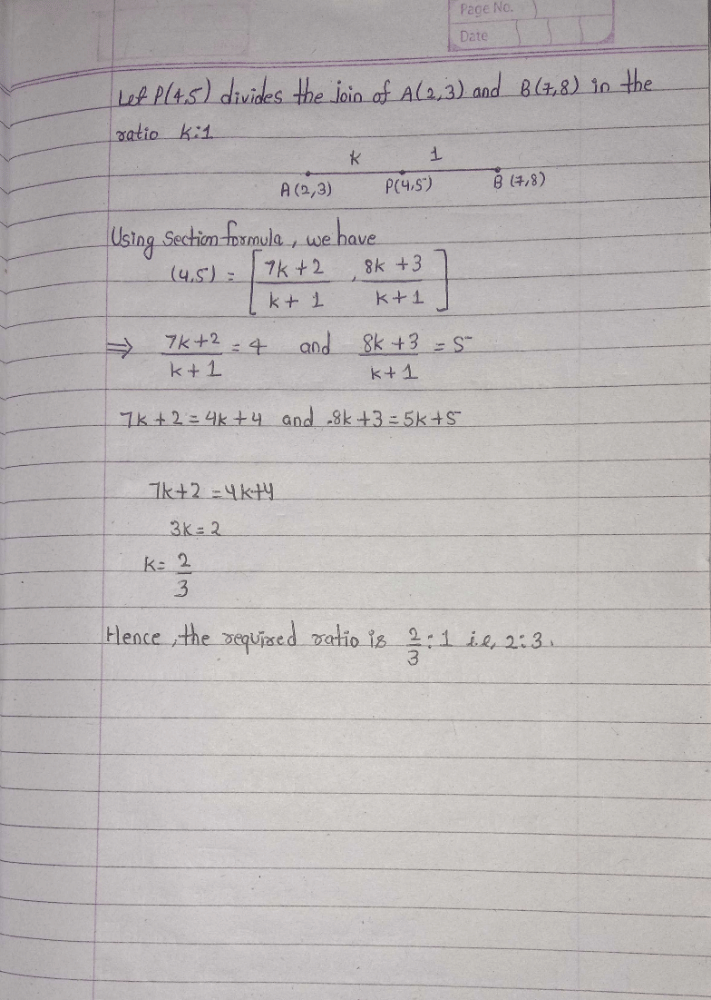 Page No.
Date
Let P(4,5) divides the join of A(2,3) and B(7,8) in the
ratio k:1
k 1
A(2,3) P(4,5) B(7,8)
Using section formula, we have
(4,5) = [ 7k+2 / k+1 , 8k+3 / k+1 ]
⇒ 7k+2 / k+1 = 4 and 8k+3 / k+1 = 5
7k+2=4k+4 and 8k+3=5k+5
7k+2=4k+4
3k=2
k= 2/3
Hence, the required ratio is 2/3 : 1 i.e, 2:3.